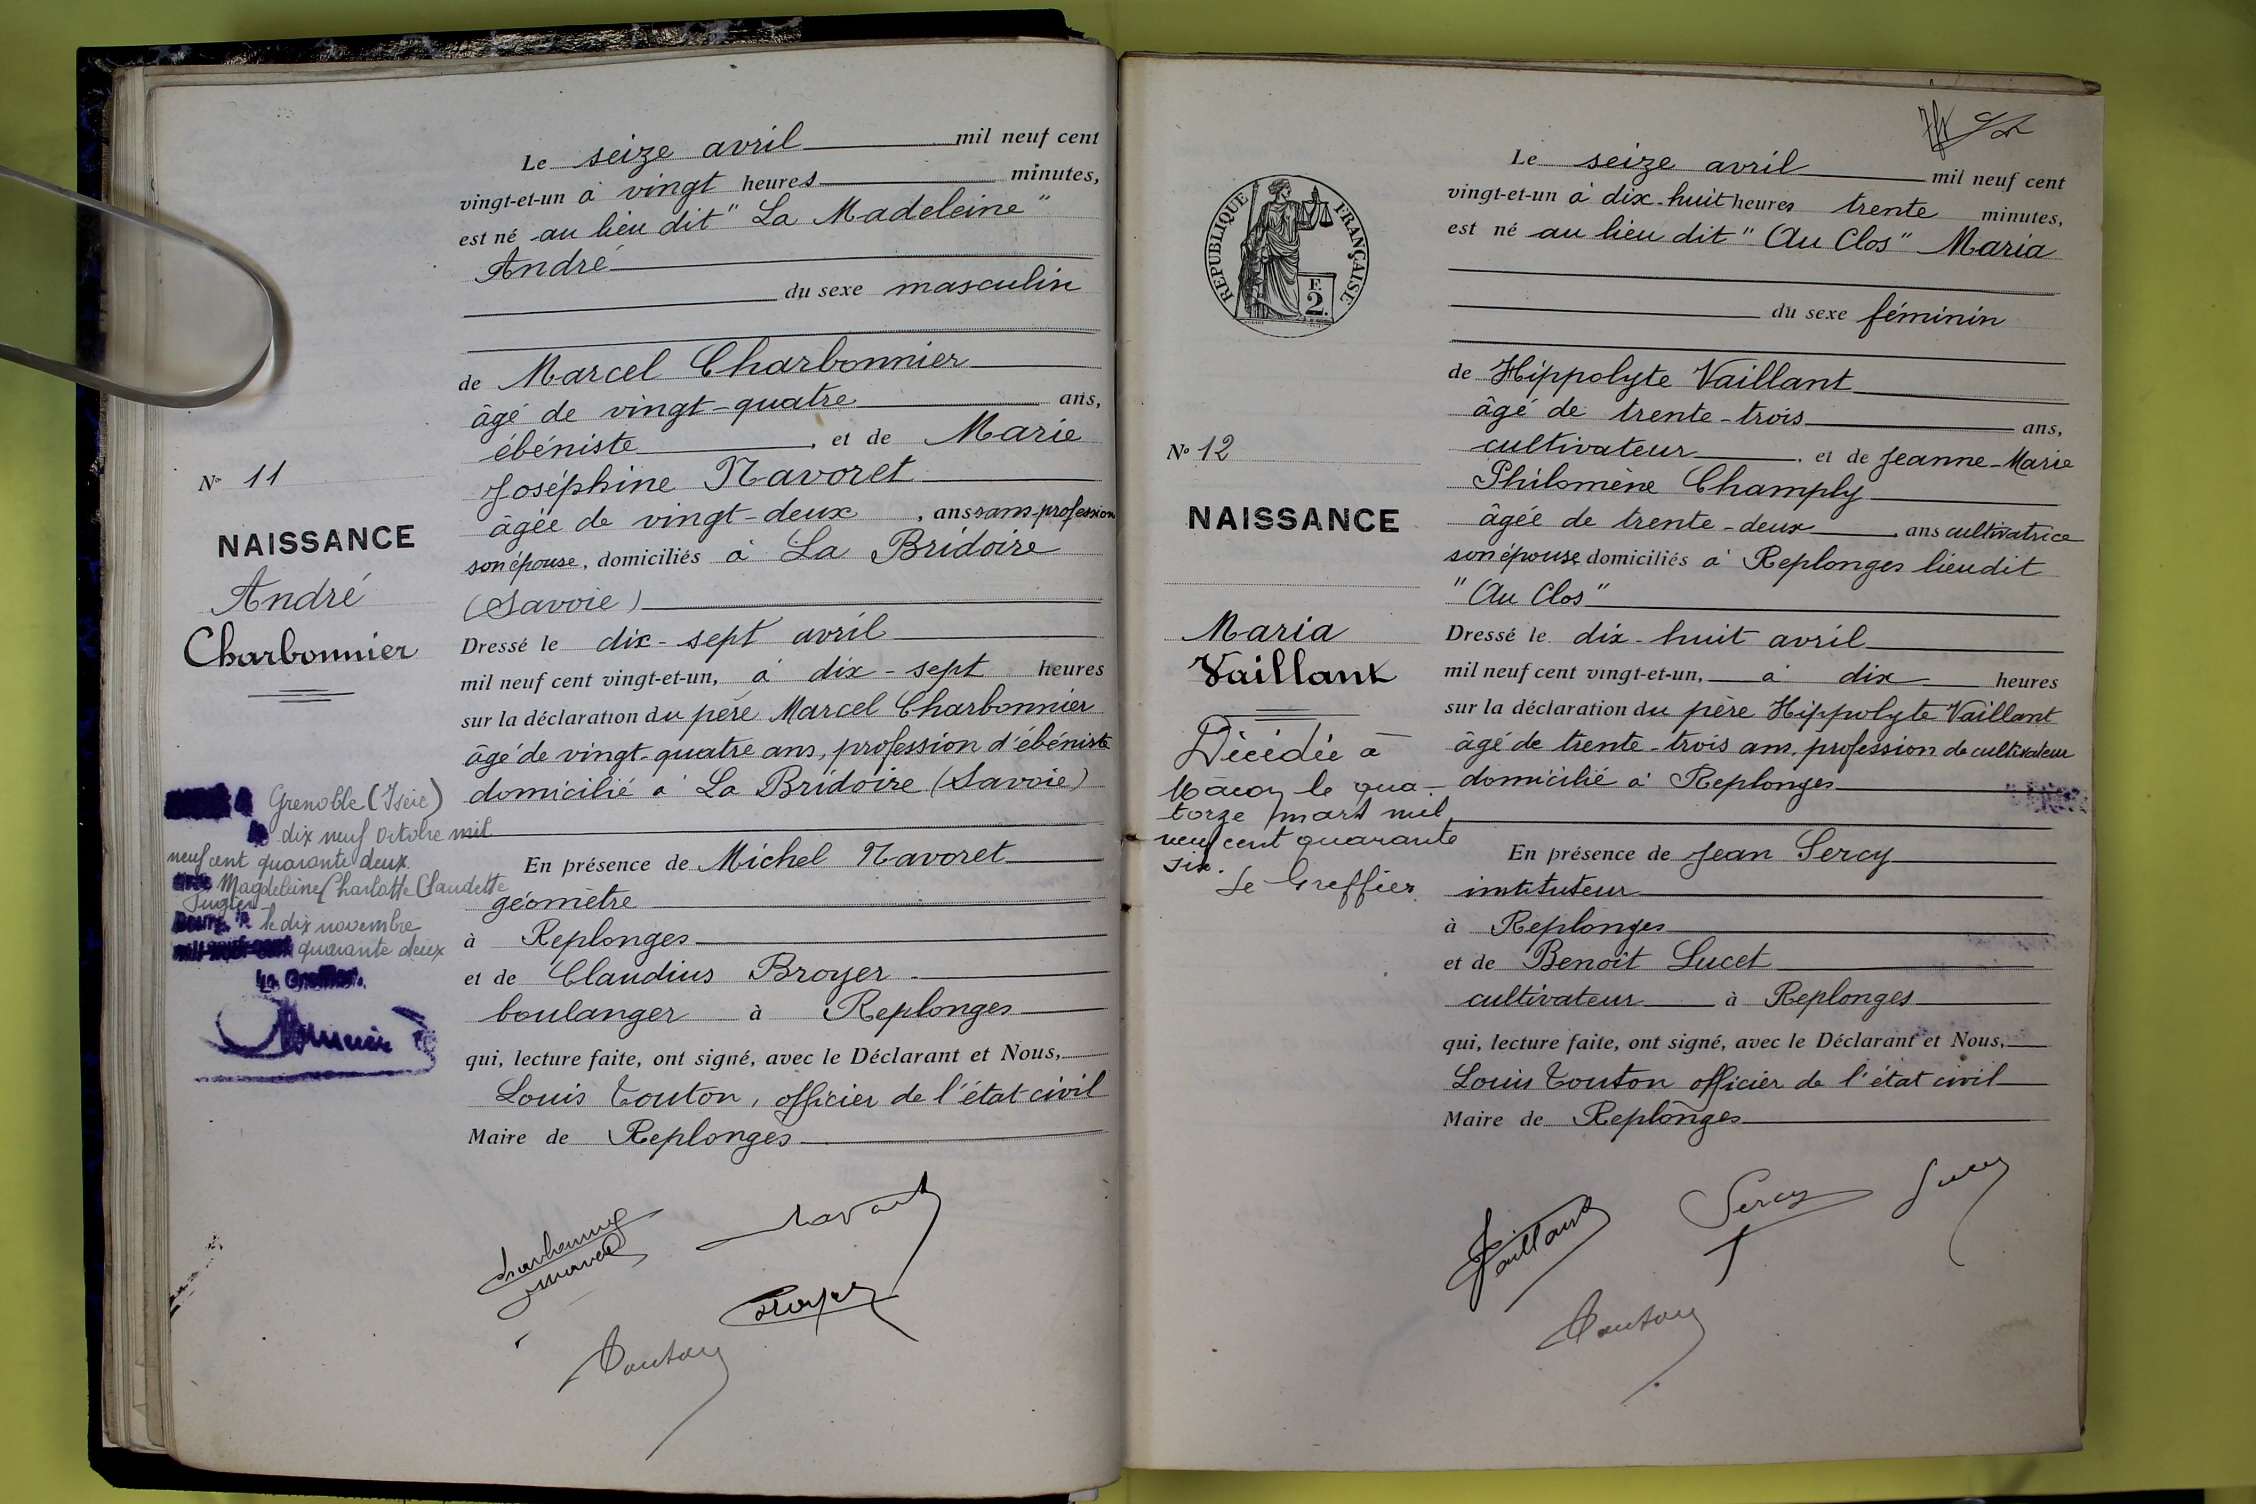 Le seize avril mil neuf cent
vingt-et-un à vingt heures minutes,
est né au lieu dit "La Madeleine"
André
du sexe masculin
de Marcel Charbonnier
âgé de vingt-quatre ans,
ébéniste, et de Marie
Joséphine Navoret
âgée de vingt-deux, ans sans profession
son épouse, domiciliés à La Bridoire
(Savoie)
Dressé le dix-sept avril
mil neuf cent vingt-et-un, à dix-sept heures
sur la déclaration du père Marcel Charbonnier
âgé de vingt-quatre ans, profession d'ébéniste
domicilié à La Bridoire (Savoie)
En présence de Michel Navoret
géomètre
à Replonges
et de Claudius Broyer
boulanger à Replonges
qui, lecture faite, ont signé, avec le Déclarant et Nous,
Louis Touton, officier de l'état civil
Maire de Replonges
No 11
NAISSANCE
André
Charbonnier
Grenoble (Isère)
dix neuf octobre mil
neuf cent quarante deux
avec Magdeleine Charlotte Claudette
le dix novembre
quarante deux
Le Greffier
Charbonnier
Navoret
Broyer
Touton
Le seize avril mil neuf cent
vingt-et-un à dix-huit heures trente minutes,
est né au lieu dit "Au Clos" Maria
du sexe féminin
de Hippolyte Vaillant
âgé de trente-trois ans,
cultivateur, et de Jeanne-Marie
Philomène Champly
âgée de trente-deux, ans cultivatrice
son épouse domiciliés à Replonges lieu dit
"Au Clos"
Dressé le dix-huit avril
mil neuf cent vingt-et-un, à dix heures
sur la déclaration du père Hippolyte Vaillant
âgé de trente-trois ans, profession de cultivateur
domicilié à Replonges
En présence de Jean Sercy
instituteur
à Replonges
et de Benoît Lucet
cultivateur à Replonges
qui, lecture faite, ont signé, avec le Déclarant et Nous,
Louis Touton officier de l'état civil
Maire de Replonges
RÉPUBLIQUE FRANÇAISE
F.
2.
No 12
NAISSANCE
Maria
Vaillant
Décédée à
Mâcon le qua-
torze mars mil
neuf cent quarante
six.
Le Greffier
Vaillant
Sercy
Touton